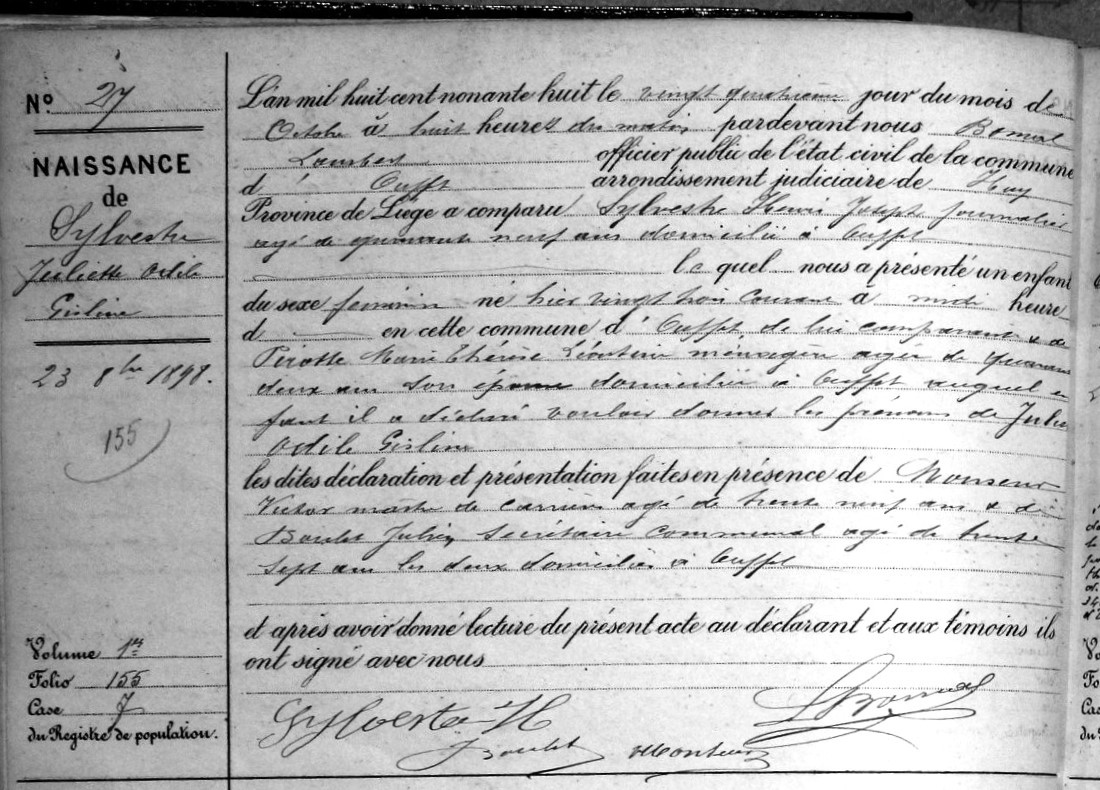 N° 27
NAISSANCE
de
Sylvestre
Juliette Odile
Gisline
23 8bre 1898.
155
Volume 1er
Folio 155
Case 7
du Registre de population.
L'an mil huit cent nonante huit le vingt quatrième jour du mois de
Octobre à huit heures du matin pardevant nous Bomal
Lambert officier public de l'état civil de la commune
d' Ouffet arrondissement judiciaire de Huy
Province de Liége a comparu Sylvestre Henri Joseph journalier
agé de quarante neuf ans domicilié à Ouffet
le quel nous a présenté un enfant
du sexe feminin né hier vingt trois courant à midi heure
d en cette commune d' Ouffet, de lui comparant & de
Pirotte Marie Thérèse Léontine ménagère agée de quarante
deux ans son épouse domiciliée à Ouffet auquel en
fant il a déclaré vouloir donner les prénoms de
Odile Gisline
les dites déclaration et présentation faites en présence de
Victor maître de carrière agé de trente neuf ans & de
Boulet Julien secrétaire communal agé de trente
sept ans les deux domiciliés à Ouffet
et après avoir donné lecture du présent acte au déclarant et aux témoins ils
ont signé avec nous
Sylvestre H
LBomal
JBoulet